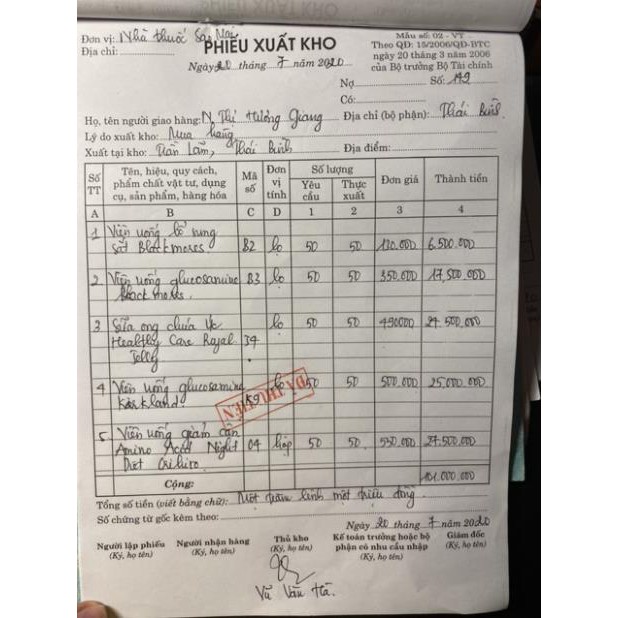 Đơn vị: Nhà thuốc Sao Mai
Địa chỉ:
PHIẾU XUẤT KHO
Ngày 20 tháng 7 năm 2020
Mẫu số: 02 - VT
Theo QĐ: 15/2006/QĐ-BTC
ngày 20 tháng 3 năm 2006
của Bộ trưởng Bộ Tài chính
Nợ Số: 142
Có:
Họ, tên người giao hàng: N. Thị Hương Giang Địa chỉ (bộ phận): Thái Bình
Lý do xuất kho: Mua hàng
Xuất tại kho: Trần Lãm, Thái Bình Địa điểm:
Số TT Tên, hiệu, quy cách, phẩm chất vật tư, dụng cụ, sản phẩm, hàng hóa Mã số Đơn vị tính Số lượng Yêu cầu Thực xuất Đơn giá Thành tiền
A B C D 1 2 3 4
1 Viên uống bổ sung
sắt Blackmores. B2 lọ 50 50 130.000 6.500.000
2 Viên uống glucosamine B3 lọ 50 50 350.000 17.500.000
Blackmores.
3 Sữa ong chúa Úc lọ 50 50 490000 24.500.000
Healthy Care Rojal 34
Jelly
4 Viên uống glucosamine lọ 50 50 500.000 25.000.000
Kirkland.
ĐÃ THU TIỀN
5 Viên uống giảm cân
Amino Acid Night 04 hộp 50 50 550.000 27.500.000
Diet Orihiro
Cộng: 101.000.000
Tổng số tiền (viết bằng chữ): Một trăm linh một triệu đồng.
Số chứng từ gốc kèm theo:
Ngày 20 tháng 7 năm 2020
Người lập phiếu Người nhận hàng Thủ kho Kế toán trưởng hoặc bộ phận có nhu cầu nhập Giám đốc
(Ký, họ tên) (Ký, họ tên) (Ký, họ tên) (Ký, họ tên) (Ký, họ tên)
Vũ Văn Hà.